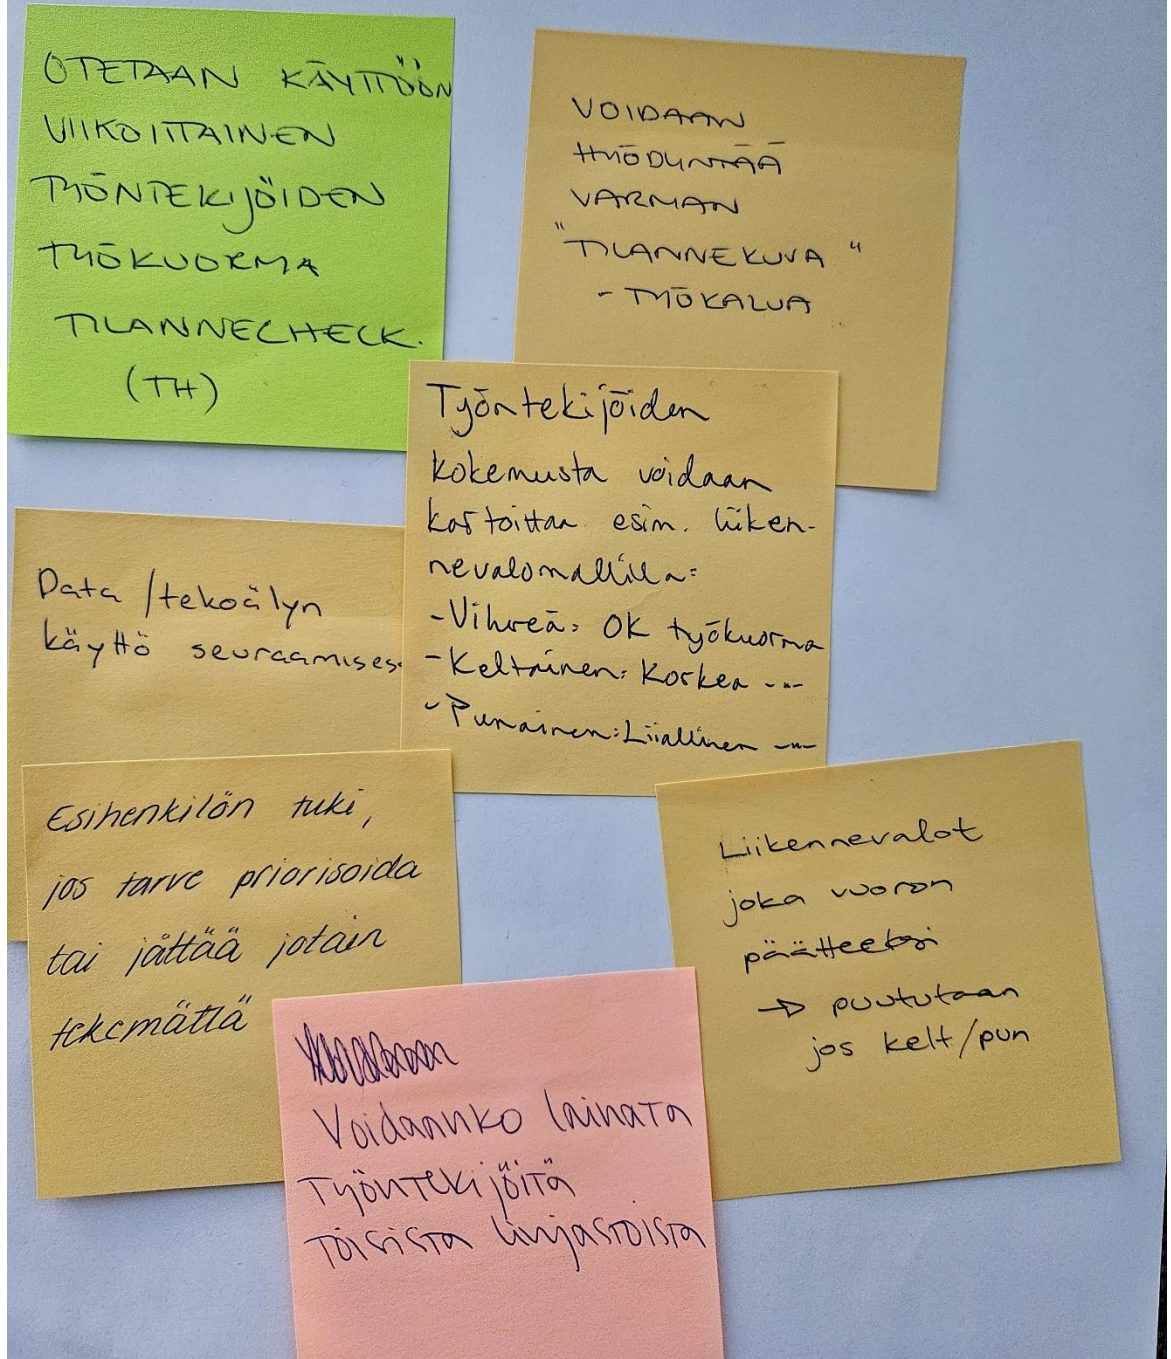 OTETAAN KÄYTTÖÖN
VIIKOITTAINEN
TYÖNTEKIJÖIDEN
TYÖKUORMA
TILANNECHECK.
(TH)
VOIDAAN
HYÖDYNTÄÄ
VARMAN
"TILANNEKUVA"
- TYÖKALUA
Työntekijöiden
kokemusta voidaan
kartoittaa esim. liiken-
nevalomallilla:
- Vihreä: OK työkuorma
- Keltainen: Korkea -"-
- Punainen: Liiallinen -"-
Data /tekoälyn
käyttö seuraamises
Esihenkilön tuki,
jos tarve priorisoida
tai jättää jotain
tekemättä
Liikennevalot
joka vuoron
päätteeksi
→ puututaan
jos kelt/pun
Voidaanko lainata
työntekijöitä
toisista linjastoista